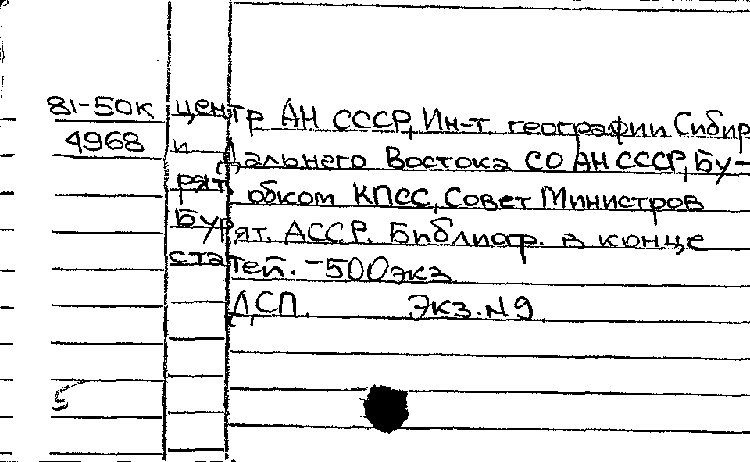 81-50к центр АН СССР, Ин-т географии Сибир
4968 и Дальнего Востока СО АН СССР, Бу-
рят. обком КПСС, Совет Министров
Бурят. АССР. Библиогр. в конце
статей. - 500 экз
ДСП. Экз. N 9
5